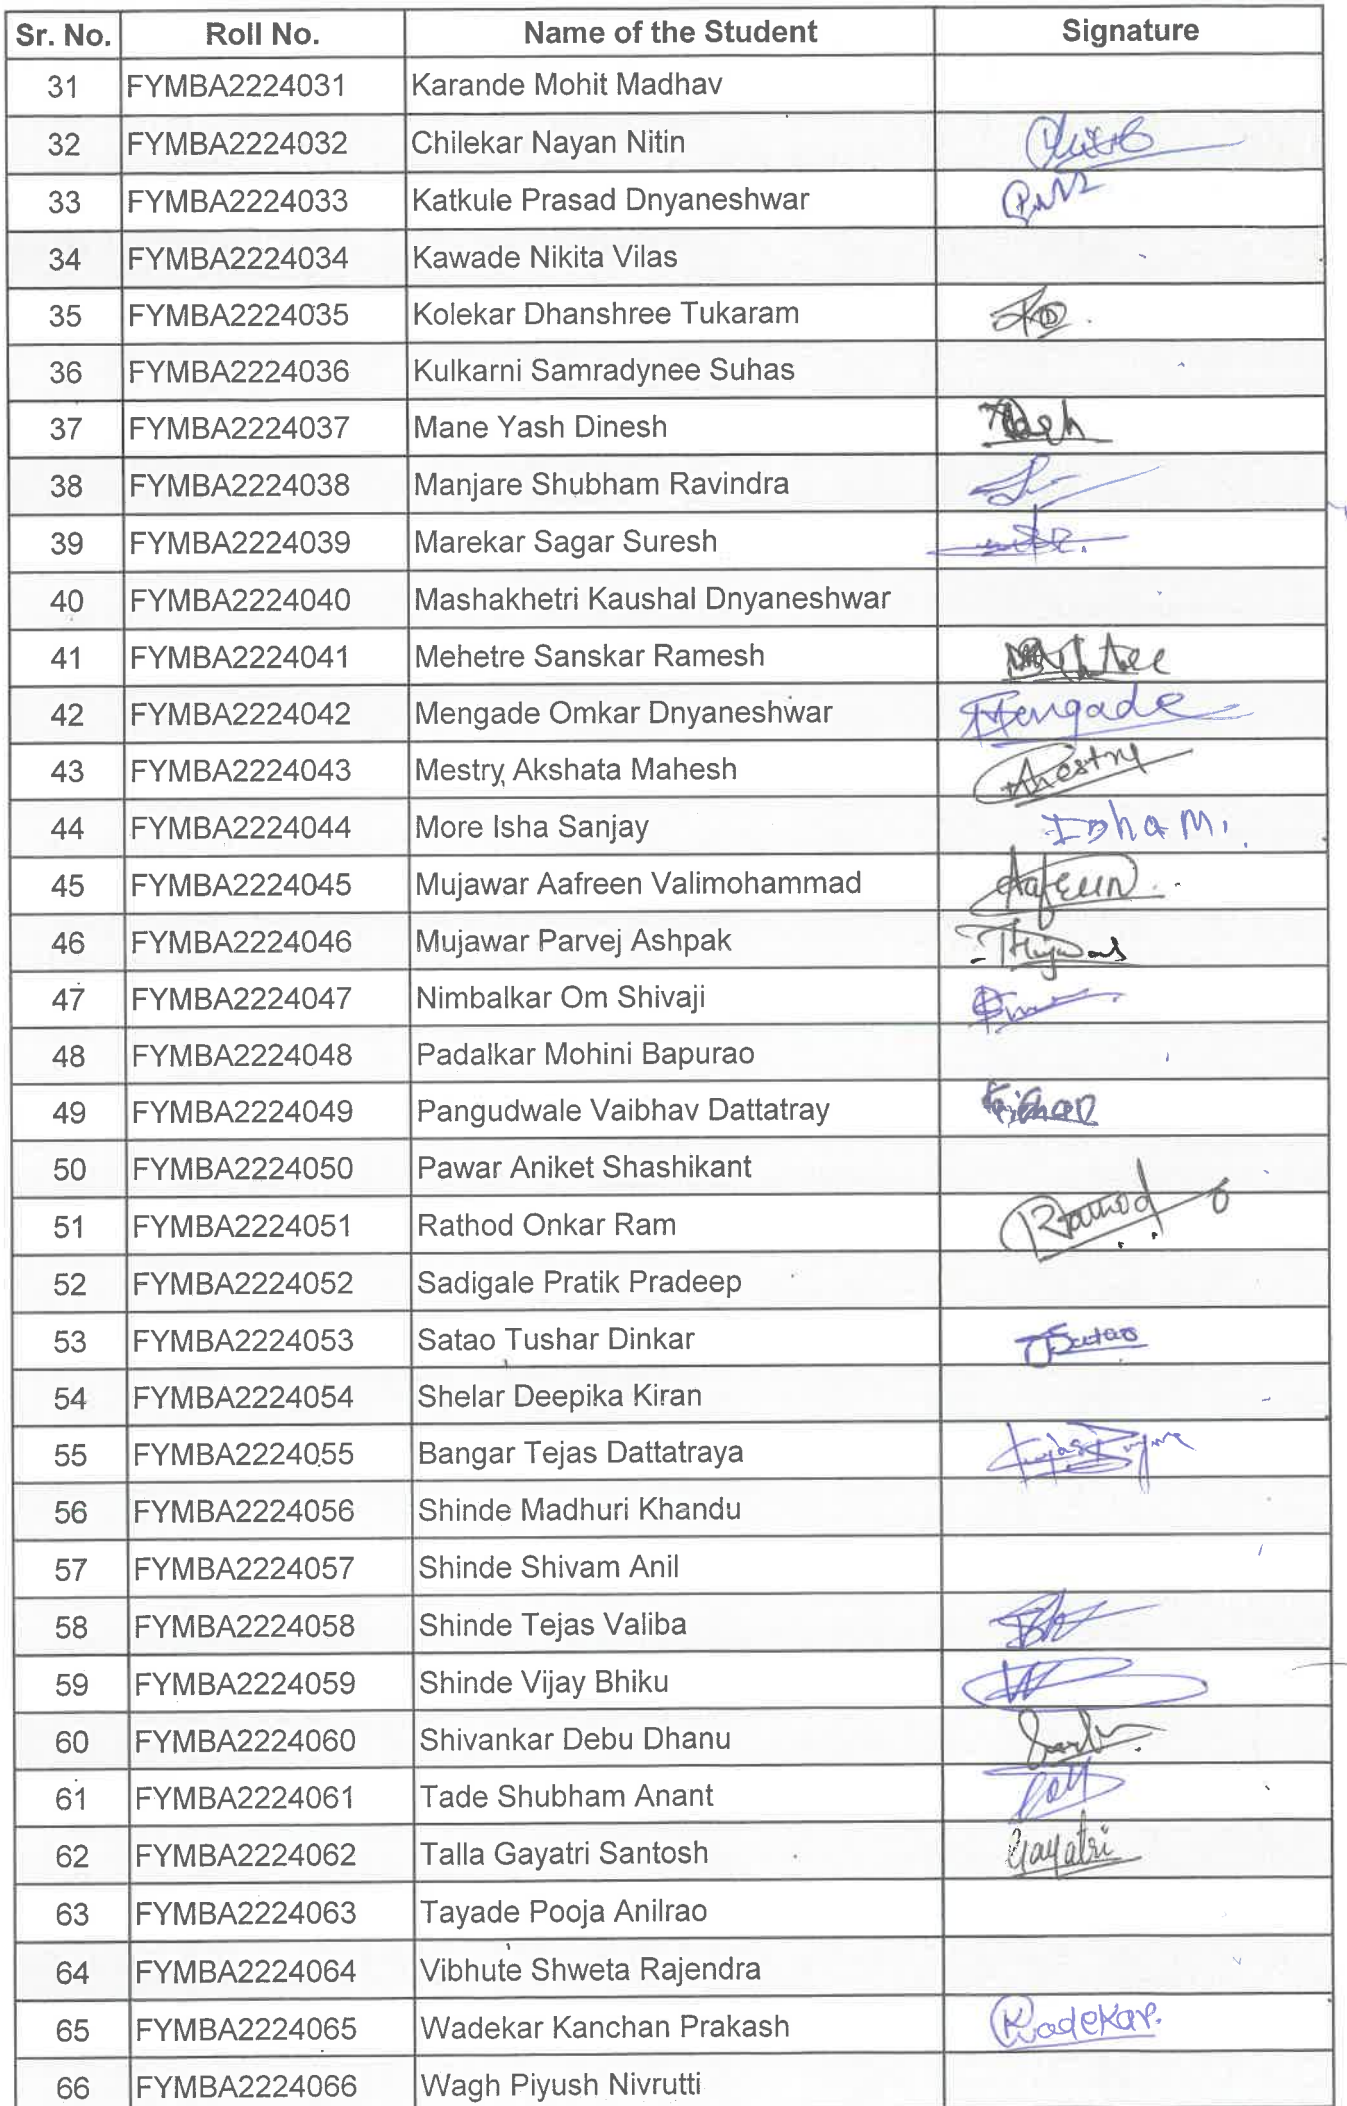 Sr. No. Roll No. Name of the Student Signature
31 FYMBA2224031 Karande Mohit Madhav
32 FYMBA2224032 Chilekar Nayan Nitin
33 FYMBA2224033 Katkule Prasad Dnyaneshwar
34 FYMBA2224034 Kawade Nikita Vilas
35 FYMBA2224035 Kolekar Dhanshree Tukaram
36 FYMBA2224036 Kulkarni Samradynee Suhas
37 FYMBA2224037 Mane Yash Dinesh
38 FYMBA2224038 Manjare Shubham Ravindra
39 FYMBA2224039 Marekar Sagar Suresh
40 FYMBA2224040 Mashakhetri Kaushal Dnyaneshwar
41 FYMBA2224041 Mehetre Sanskar Ramesh
42 FYMBA2224042 Mengade Omkar Dnyaneshwar Mengade
43 FYMBA2224043 Mestry Akshata Mahesh
44 FYMBA2224044 More Isha Sanjay Isha M.
45 FYMBA2224045 Mujawar Aafreen Valimohammad Aafreen
46 FYMBA2224046 Mujawar Parvej Ashpak
47 FYMBA2224047 Nimbalkar Om Shivaji
48 FYMBA2224048 Padalkar Mohini Bapurao
49 FYMBA2224049 Pangudwale Vaibhav Dattatray
50 FYMBA2224050 Pawar Aniket Shashikant
51 FYMBA2224051 Rathod Onkar Ram Rathod
52 FYMBA2224052 Sadigale Pratik Pradeep
53 FYMBA2224053 Satao Tushar Dinkar Satao
54 FYMBA2224054 Shelar Deepika Kiran
55 FYMBA2224055 Bangar Tejas Dattatraya
56 FYMBA2224056 Shinde Madhuri Khandu
57 FYMBA2224057 Shinde Shivam Anil
58 FYMBA2224058 Shinde Tejas Valiba
59 FYMBA2224059 Shinde Vijay Bhiku
60 FYMBA2224060 Shivankar Debu Dhanu
61 FYMBA2224061 Tade Shubham Anant
62 FYMBA2224062 Talla Gayatri Santosh Gayatri
63 FYMBA2224063 Tayade Pooja Anilrao
64 FYMBA2224064 Vibhute Shweta Rajendra
65 FYMBA2224065 Wadekar Kanchan Prakash Wadekar.
66 FYMBA2224066 Wagh Piyush Nivrutti